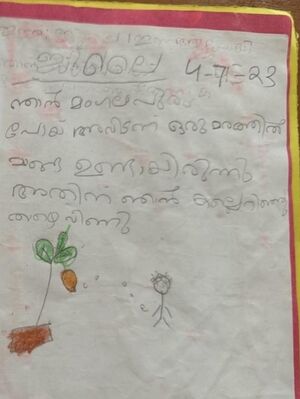 ജൂലൈ 4-7-23
ഞാൻ മംഗലപുരം
പോയ് അവിടന് ഒരു മരത്തിൽ
ഉണ്ടായിരുന്നു
അതിന് ഞൻ കല്ലെറിഞ്ഞു
തഴെ വിണു